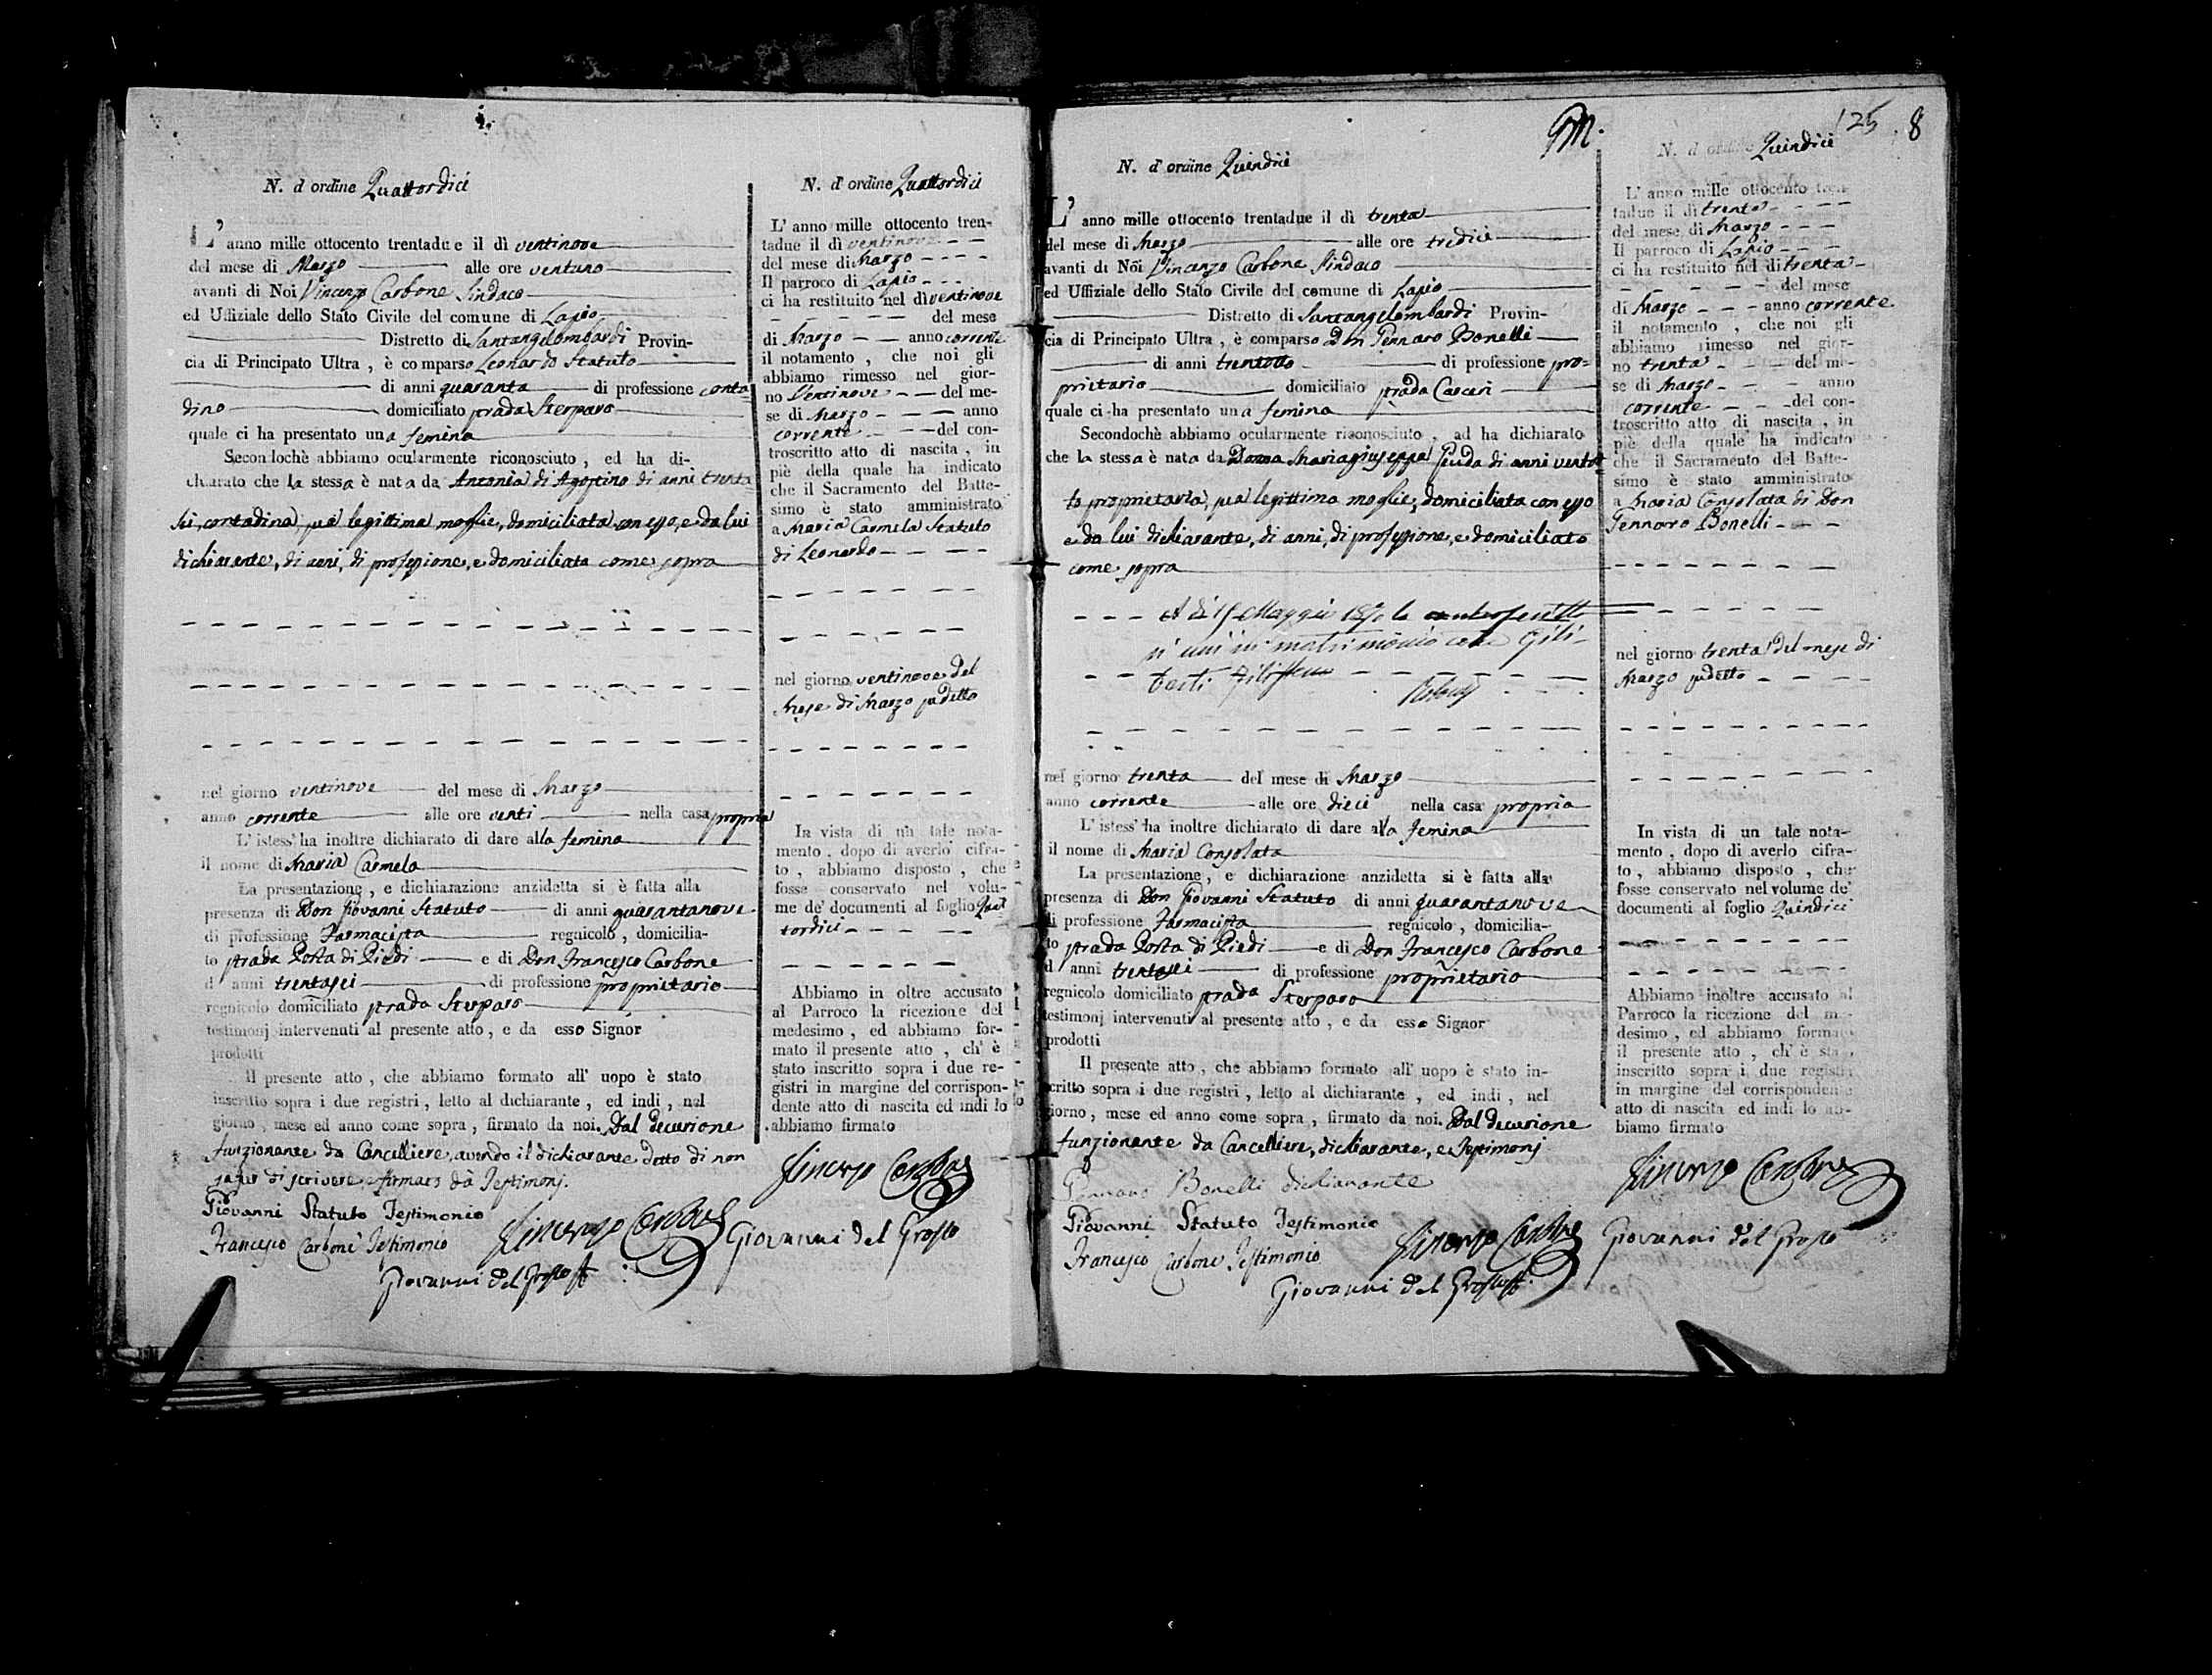 N. d'ordine Quattordici
L'anno mille ottocento trentadue il dì ventinove
del mese di Marzo alle ore ventuno
avanti di Noi Vincenzo Carbone Sindaco
ed Uffiziale dello Stato Civile del comune di Lapio
Distretto di Santangelombardi Provin-
cia di Principato Ultra, è comparso Leonardo Statuto
di anni quaranta di professione conta
dino domiciliato strada Sterparo
quale ci ha presentato una femina
Secondochè abbiamo ocularmente riconosciuto, ed ha di-
chiarato che la stessa è nata da Antonia di Agostino di anni trenta
sei, contadina, sua legittima moglie, domiciliata con esso, e da lui
dichiarante, di anni, di professione, e domiciliata come sopra
nel giorno ventinove del mese di Marzo
anno corrente alle ore venti nella casa propria
L'istess' ha inoltre dichiarato di dare alla femina
il nome di Maria Carmela
La presentazione, e dichiarazione anzidetta si è fatta alla
presenza di Don Giovanni Statuto di anni quarantanove
di professione Farmacista regnicolo, domicilia-
to strada Porta di Piedi e di Don Francesco Carbone
d anni trentasei di professione proprietario
regnicolo domiciliato strada Sterparo
testimonj intervenuti al presente atto, e da esso Signor
prodotti
Il presente atto, che abbiamo formato all' uopo è stato
inscritto sopra i due registri, letto al dichiarante, ed indi, nel
giorno, mese ed anno come sopra, firmato da noi. Dal Decurione
funzionante da Cancelliere, avendo il dichiarante detto di non
saper di scrivere e firmars da Testimonj.
Giovanni Statuto Testimonio
Francesco Carbone Testimonio
Vincenzo Carbone
Giovanni del Grosso
N. d'ordine Quattordici
L'anno mille ottocento tren-
tadue il dì ventinove
del mese di Marzo
Il parroco di Lapio
ci ha restituito nel dì ventinove
del mese
di Marzo anno corrente
il notamento, che noi gli
abbiamo rimesso nel gior-
no Ventinove del me-
se di Marzo anno
corrente del con-
troscritto atto di nascita, in
piè della quale ha indicato
che il Sacramento del Batte-
simo è stato amministrato
a Maria Carmela Statuto
di Leonardo
nel giorno ventinove del
Mese di Marzo sudetto
In vista di un tale nota-
mento, dopo di averlo cifra-
to, abbiamo disposto, che
fosse conservato nel volu-
me de' documenti al foglio Quat
tordici
Abbiamo in oltre accusato
al Parroco la ricezione del
medesimo, ed abbiamo for-
mato il presente atto, ch' è
stato inscritto sopra i due re-
gistri in margine del corrispon-
dente atto di nascita ed indi lo
abbiamo firmato
Vincenzo Carbone
Giovanni del Grosso
125 8
N. d'ordine Quindici
L'anno mille ottocento trentadue il dì trenta
del mese di Marzo alle ore tredici
avanti di Noi Vincenzo Carbone Sindaco
ed Uffiziale dello Stato Civile del comune di Lapio
Distretto di Santangelombardi Provin-
cia di Principato Ultra, è comparso Don Gennaro Bonelli
di anni trentotto di professione pro=
prietario domiciliato strada Carceri
quale ci ha presentato una femina
Secondochè abbiamo ocularmente riconosciuto, ad ha dichiarato
che la stessa è nata da Donna Mariagiuseppa di anni ventot
to proprietaria, sua legittima moglie, domiciliata con esso
e da lui dichiarante, di anni, di professione, e domiciliato
come sopra
A dì Maggio la controscritta
si unì in matrimonio con Gili-
berti
nel giorno trenta del mese di Marzo
anno corrente alle ore dieci nella casa propria
L'istess' ha inoltre dichiarato di dare alla femina
il nome di Maria Consolata
La presentazione, e dichiarazione anzidetta si è fatta alla
presenza di Don Giovanni Statuto di anni quarantanove
di professione Farmacista regnicolo, domicilia-
to strada Porta di Piedi e di Don Francesco Carbone
d anni trentasei di professione proprietario
regnicolo domiciliato strada Sterparo
testimonj intervenuti al presente atto, e da esso Signor
prodotti
Il presente atto, che abbiamo formato all' uopo è stato in-
scritto sopra i due registri, letto al dichiarante, ed indi, nel
giorno, mese ed anno come sopra, firmato da noi. Dal Decurione
funzionante da Cancelliere, dichiarante, e Testimonj
Gennaro Bonelli dichiarante
Giovanni Statuto Testimonio
Francesco Carbone Testimonio
Vincenzo Carbone
Giovanni del Grosso
N. d'ordine Quindici
L'anno mille ottocento tren-
tadue il dì trenta
del mese di Marzo
Il parroco di Lapio
ci ha restituito nel dì trenta
del mese
di Marzo anno corrente
il notamento, che noi gli
abbiamo rimesso nel gior-
no trenta del me-
se di Marzo anno
corrente del con-
troscritto atto di nascita, in
piè della quale ha indicato
che il Sacramento del Batte-
simo è stato amministrato
a Maria Consolata di Don
Gennaro Bonelli
nel giorno trenta del mese di
Marzo sudetto
In vista di un tale nota-
mento, dopo di averlo cifra-
to, abbiamo disposto, che
fosse conservato nel volume de'
documenti al foglio Quindici
Abbiamo inoltre accusato al
Parroco la ricezione del me-
desimo, ed abbiamo formato
il presente atto, ch' è stato
inscritto sopra i due registri
in margine del corrispondente
atto di nascita ed indi lo ab-
biamo firmato
Vincenzo Carbone
Giovanni del Grosso